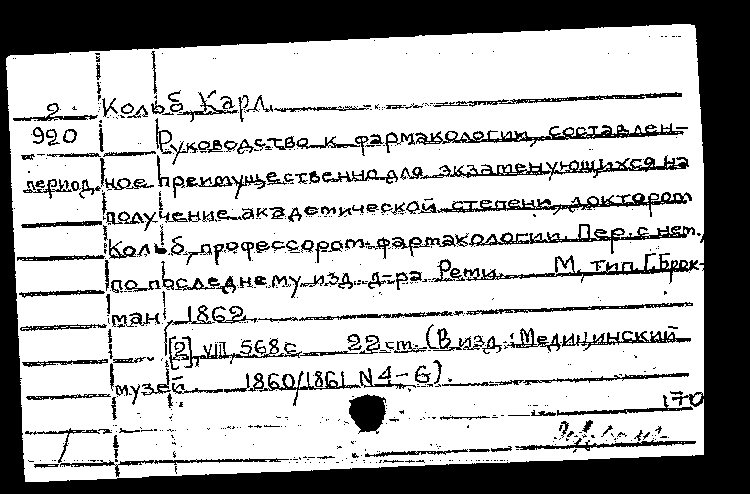 2. Кольб, Карл.
920 Руководство к фармакологии, составлен-
период. ное преимущественно для экзаменующихся на
получение академической степени, доктором
Кольб, профессором фармакологии. Пер. с нем.,
по последнему изд. д-ра Рети. М., тип. Г. Брок-
ман, 1862
[2], VIII, 568 с 22 cm. (В изд.: Медицинский
музей 1860/1861 N 4-6).
170